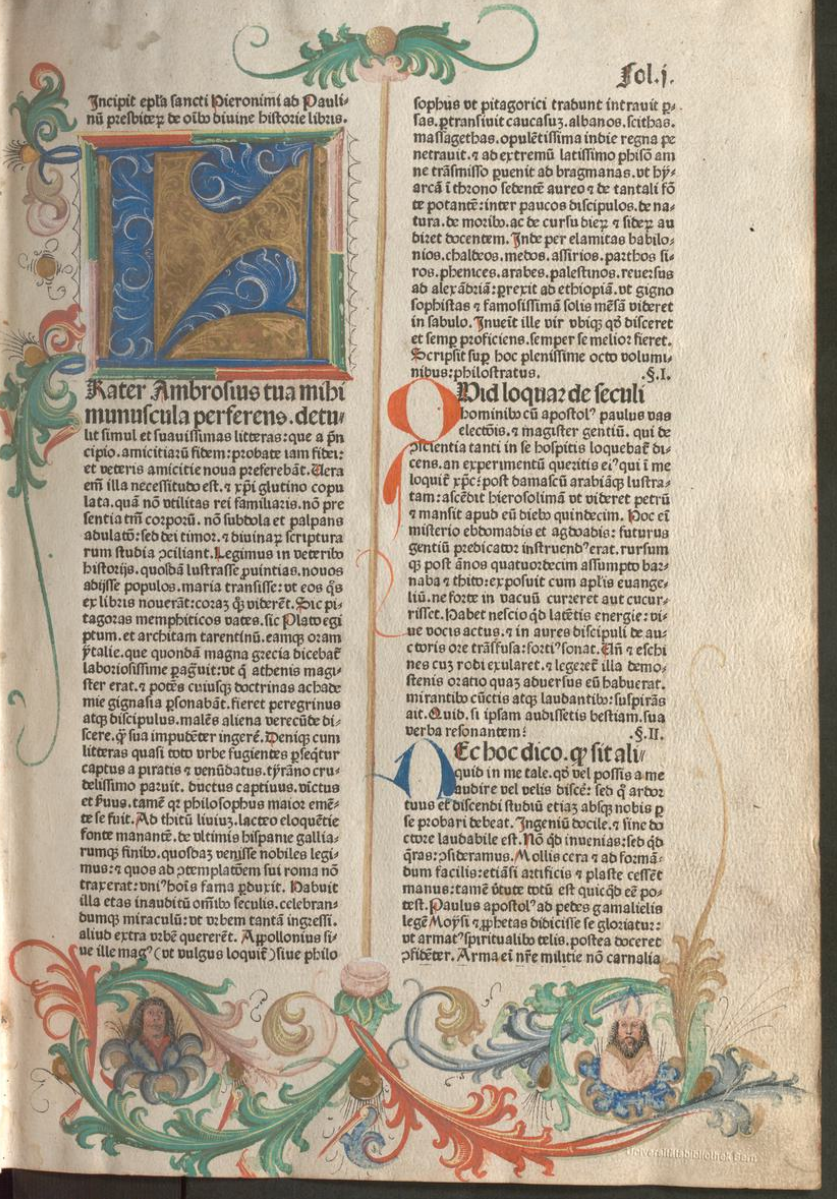 Fol.j.
Incipit epl̃a sancti Hieronimi ad Pauli⸗
nū presbiteꝝ de oĩbꝰ divine historie libris.
Frater Ambrosius tua mihi
munuscula perferens.detu⸗
lit simul et suavissimas litteras:que a pñ
cipio.amicitiarū fidem:probate iam fidei:
et veteris amicitie noua preferebāt.Uera
em̃ illa necessitudo est.⁊ xp̃i glutino copu
lata.quā nō vtilitas rei familiaris.nō pre
sentia tm̃ corporū.nō subdola et palpans
adulatō:sed dei timor.⁊ divinaꝝ scriptura
rum studia ↄciliant.Legimus in veteribꝰ
historijs.quosdā lustrasse ꝓuintias.nouos
adijsse populos.maria transisse:vt eos q̄s
ex libris nouerāt:coraꝫ qꝫ viderēt.Sic pi⸗
tagoras memphiticos vates.sic Plato egi
ptum.et architam tarentinū.eamqꝫ oram
ytalie.que quondā magna grecia dicebat̃
laboriosissime ꝑagͣuit:vt q̄ athenis magi⸗
ster erat.⁊ potēs cuiusqꝫ doctrinas achade
mie gignasia ꝑsonabāt.fieret peregrinus
atqꝫ discipulus.malēs aliena verecūde di⸗
scere.q̄ sua impudēter ingerē.Deniqꝫ cum
litteras quasi toto vrbe fugientes ꝑseq̄tur
captus a piratis ⁊ venūdatus.tyrāno cru⸗
delissimo paruit.ductus captiuus.victus
et ẜuus.tamē qꝛ philosophus maior emē⸗
te se fuit.Ad thitū liviuꝫ.lacteo eloquētie
fonte manantē.de vltimis hispanie gallia⸗
rumqꝫ finibꝰ.quosdaꝫ venisse nobiles legi⸗
mus:⁊ quos ad ↄtemplatōem sui roma nō
traxerat:vniꝰ hoĩs fama ꝑduxit.Habuit
illa etas inauditū om̃ibꝰ seculis.celebran⸗
dumqꝫ miraculū:vt vrbem tantā ingressi.
aliud extra vrbē quererēt.Appollonius si⸗
ue ille magꝰ(vt vulgus loquit̃)siue philo
sophus vt pitagorici tradunt intrauit ꝑ⸗
sas.ꝑtransiuit caucasuꝫ.albanos.scithas.
massagethas.opulētissima indie regna pe
netrauit.⁊ ad extremū latissimo phisō am
ne trāsmisso ꝑuenit ad bragmanas.vt hy⸗
arcā ī throno sedentē aureo ⁊ de tantali fō
te potantē:inter paucos discipulos.de na⸗
tura.de moribꝰ.ac de cursu dieꝝ ⁊ sideꝝ au
diret docentem.Inde per elamitas babilo⸗
nios.chaldeos.medos.assirios.parthos si⸗
ros.phenices.arabes.palestinos.reuersus
ad alexādriā:ꝑrexit ad ethiopiā.vt gigno
sophistas ⁊ famosissimā solis mēsā videret
in sabulo.Inueīt ille vir vbiqꝫ qd̄ disceret
et semꝑ proficiens.semper se melior fieret.
Scripsit suꝑ hoc plenissime octo volumi⸗
nibus:philostratus. .§.I.
Quid loquar de seculi
hominibꝰ cū apostolꝰ paulus vas
electōis.⁊ magister gentiū.qui de
ↄscientia tanti in se hospitis loquebat̃ di⸗
cens.an experimentū queritis eiꝰ qui ī me
loquit̃ xp̃c:post damascū arabiāqꝫ lustra⸗
tam:ascēdit hierosolimā vt videret petrū
⁊ mansit apud eū diebꝰ quindecim.Hoc em̃
misterio ebdomadis et agdoadis:futurus
gentiū predicator instruendꝰ erat.rursum
qꝫ post ānos quatuordecim assumpto bar⸗
naba ⁊ thito:exposuit cum apl̃is euange⸗
liū.ne forte in vacuū curreret aut cucur⸗
risset.Habet nescio qd̄ latētis energie:vi⸗
ue vocis actus.⁊ in aures discipuli de au⸗
ctoris ore trāsfusa:fortiꝰ sonat.Un̄ ⁊ eschi
nes cuꝫ rodi exularet.⁊ legeret̃ illa demo⸗
stenis oratio quaꝫ adversus eū habuerat.
mirantibꝰ cūctis atqꝫ laudantibꝰ:suspirās
ait.Quid.si ipsam audissetis bestiam.sua
verba resonantem: .§.II.
Nec hoc dico.qꝫ sit ali⸗
quid in me tale.qd̄ vel possis a me
audire vel velis discē:sed q̄ ardor
tuus et discendi studiū etiaꝫ absqꝫ nobis ꝑ
se probari debeat.Ingeniū docile.⁊ sine do
ctore laudabile est.Nō qd̄ invenias:sed qd̄
q̄ras:ↄsideramus.Mollis cera ⁊ ad formā⸗
dum facilis:etiāsi artificis ⁊ plaste cessēt
manus:tamē v̓tute totū est quicqd̄ eē po⸗
test.Paulus apostolꝰ ad pedes gamalielis
legē Moysi ⁊ ꝓphetas didicisse se gloriatur:
vt armatꝰ spiritualibꝰ telis.postea doceret
ↄfidēter.Arma ei nr̃e militie nō carnalia